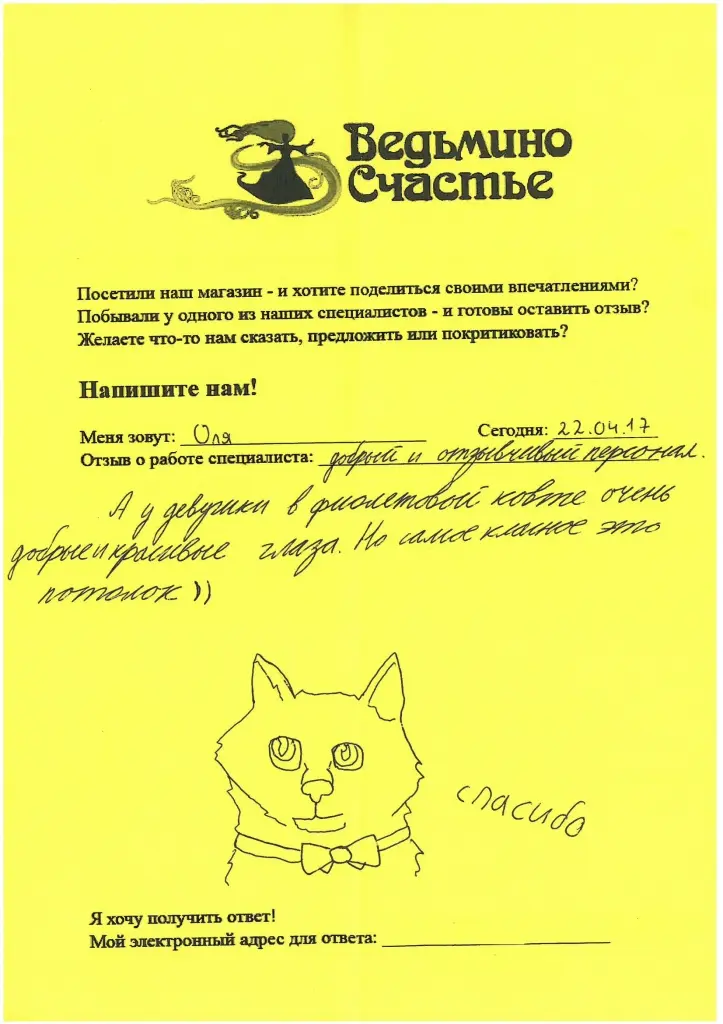 Ведьмино
Счастье
Посетили наш магазин - и хотите поделиться своими впечатлениями?
Побывали у одного из наших специалистов - и готовы оставить отзыв?
Желаете что-то нам сказать, предложить или покритиковать?
Напишите нам!
Меня зовут: Оля Сегодня: 22.04.17
Отзыв о работе специалиста: добрый и отзывчивый персонал.
А у девушки в фиолетовой кофте очень
добрые и красивые глаза. Но самое класное это
потолок ))
спасибо
Я хочу получить ответ!
Мой электронный адрес для ответа: